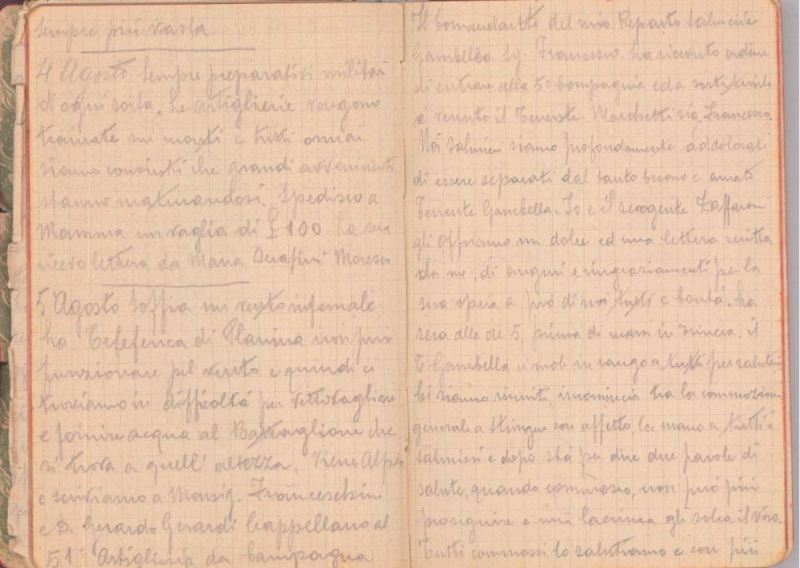 sempre più vasta
4 Agosto Sempre preparativi militari
d'ogni sorta. Le artiglierie vengono
trainate su monti e tutti ormai
siamo convinti che grandi avvenimenti
stanno maturandosi. Spedisco a
Mamma un vaglia di £ 100. La sera
ricevo lettera da Maria Serafini
5 Agosto Soffia un vento infernale,
La Teleferica di Planina non può
funzionare pel vento e quindi ci
troviamo in difficoltà per vettovagliare
e fornire acqua al Battaglione che
si trova a quell'altezza. Viene
e scriviamo a Monsig. Franceschini
e D. Gerardo Guardi Cappellano al
51° Artiglieria da Campagna
Il Comandante del mio Reparto Salmerie
Gambella Sig. Francesco, ha ricevuto ordine
di entrare alla 5ª Compagnia ed a sostituirlo
è venuto il Tenente Marchetti Sig. Francesco.
Noi Salmieri siamo profondamente addolorati
di essere separati dal tanto buono e amato
Tenente Gambella. Io e il sergente Zaffaroni
gli offriamo un dolce ed una lettera scritta
da me, di auguri e ringraziamenti per la
sua opera a prò di noi tutti e bontà. La
sera alle ore 5, prima di recarsi in trincea, il
T. Gambella ci vuole in rango a tutti per salutarci
Ci siamo riuniti, incomincia tra la commozione
generale a stringere con affetto, la mano a tutti i
salmieri e dopo sta per dire due parole di
salute, quando commosso, non può più
proseguire e una lacrima gli solca il viso.
Tutti commossi lo salutiamo e con più